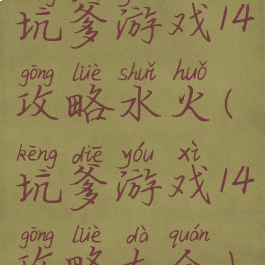 坑爹游戏14
gōng lüè shuǐ huǒ
攻略水火(
kēng diē yóu xì
坑爹游戏14
gōng lüè dà quán
攻略大全)